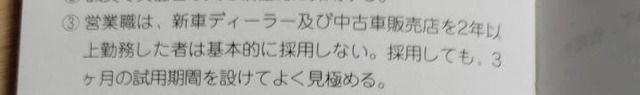 ③営業職は、新車ディーラー及び中古車販売店を2年以
上勤務した者は基本的に採用しない。採用しても、3
ヶ月の試用期間を設けてよく見極める。